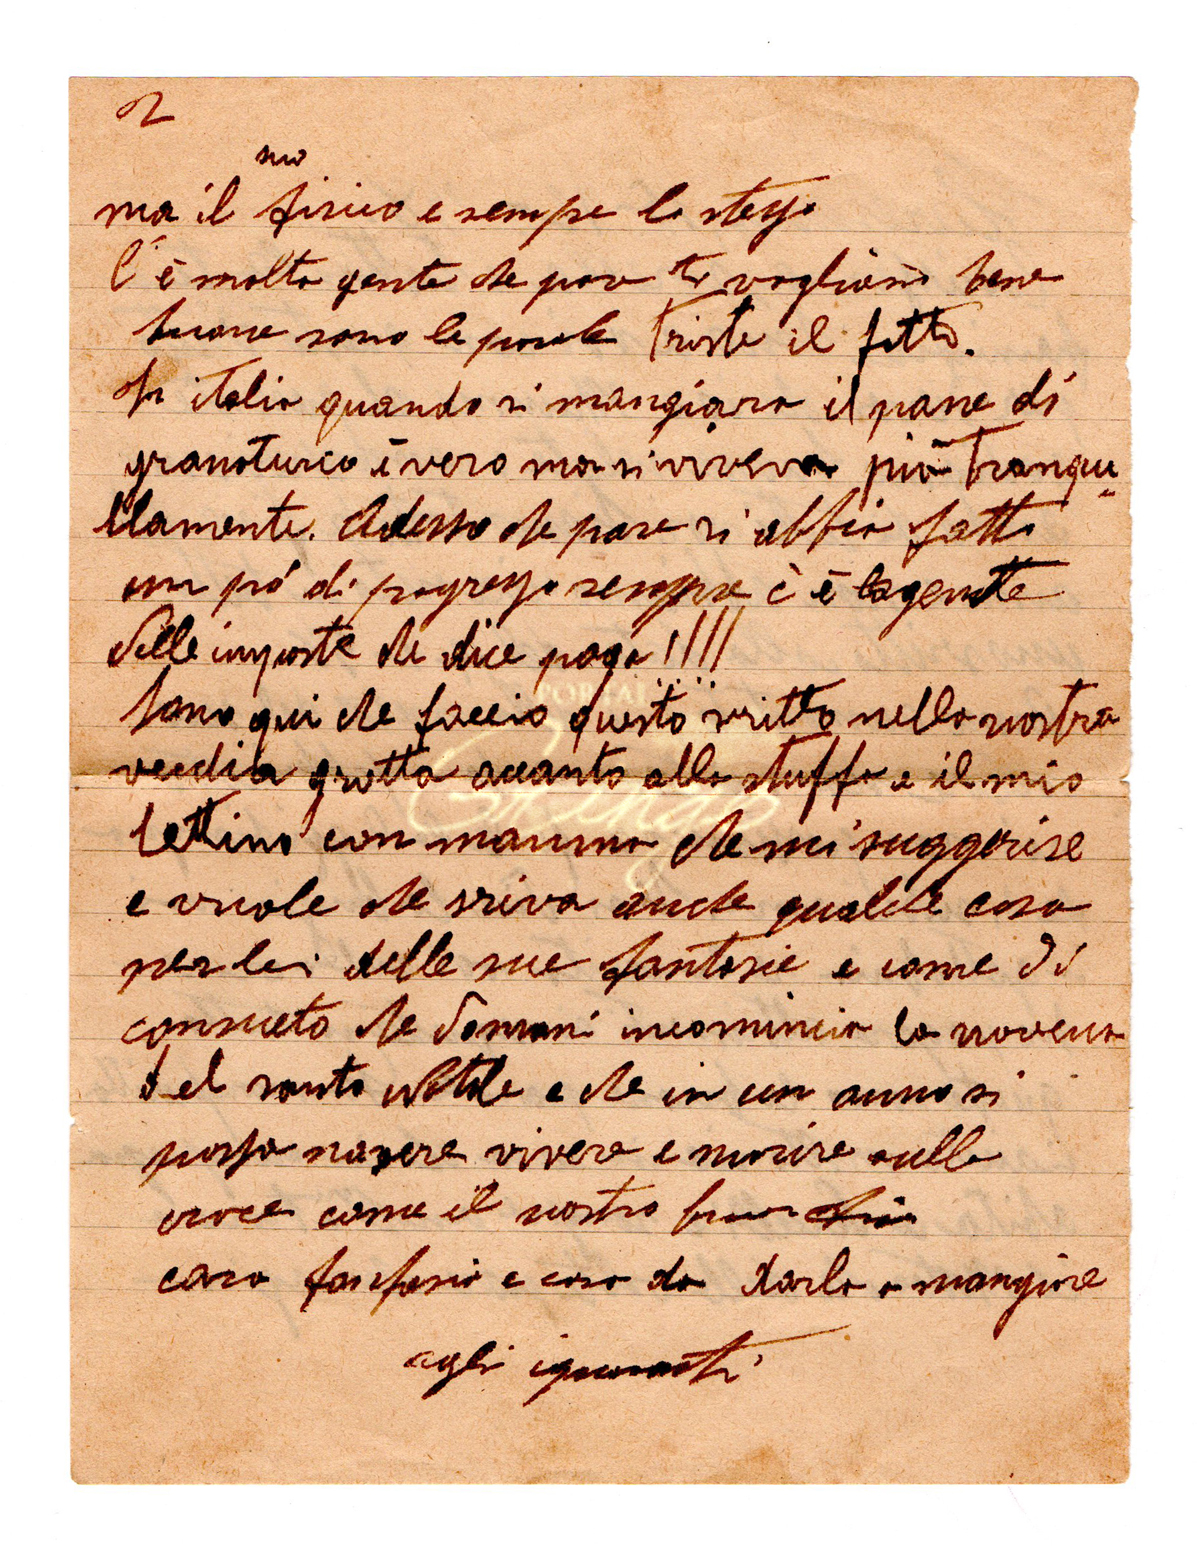 2
suo
ma il fisico e sempre lo stesso
C'è molta gente che pare ti vogliano bene
buone sono le parole Triste il fatto.
In italia quando si mangiava il pane di
granoturco è vero ma si viveva più Tranqui
llamente. Adesso che pare si abbia fatto
un pó di progresso sempre c'è la gente
delle imposte che dice paga!!!!
Sono qui che faccio questo scritto nella nostra
vecchia grotta accanto alla stuffa e il mio
lettino con mamma che mi suggerise
e vuole che sriva anche qualche cosa
per lei delle sue fantasie e come di
consueto che domani incomincia la novena
del santo Natale e che in un anno si
possa nascere vivere e morire sulla
croce come il nostro
caro e cosa da darla a mangiare
agli ignoranti
PORTAL